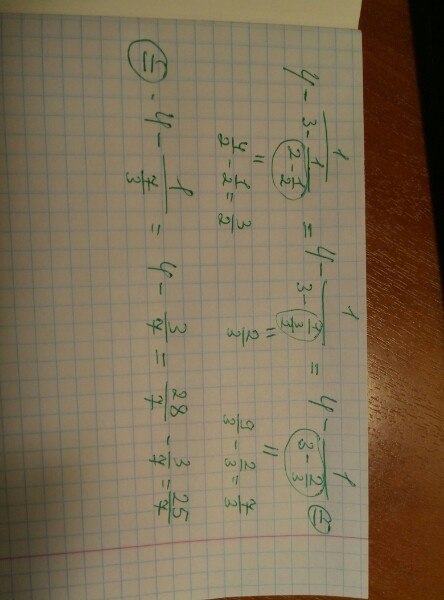 4 - 1/(3 - 1/(2 - 1/2)) = 4 - 1/(3 - 1/(3/2)) = 4 - 1/(3 - 2/3) =
|| || ||
4/2 - 1/2 = 3/2 2/3 9/3 - 2/3 = 7/3
= 4 - 1/(7/3) = 4 - 3/7 = 28/7 - 3/7 = 25/7